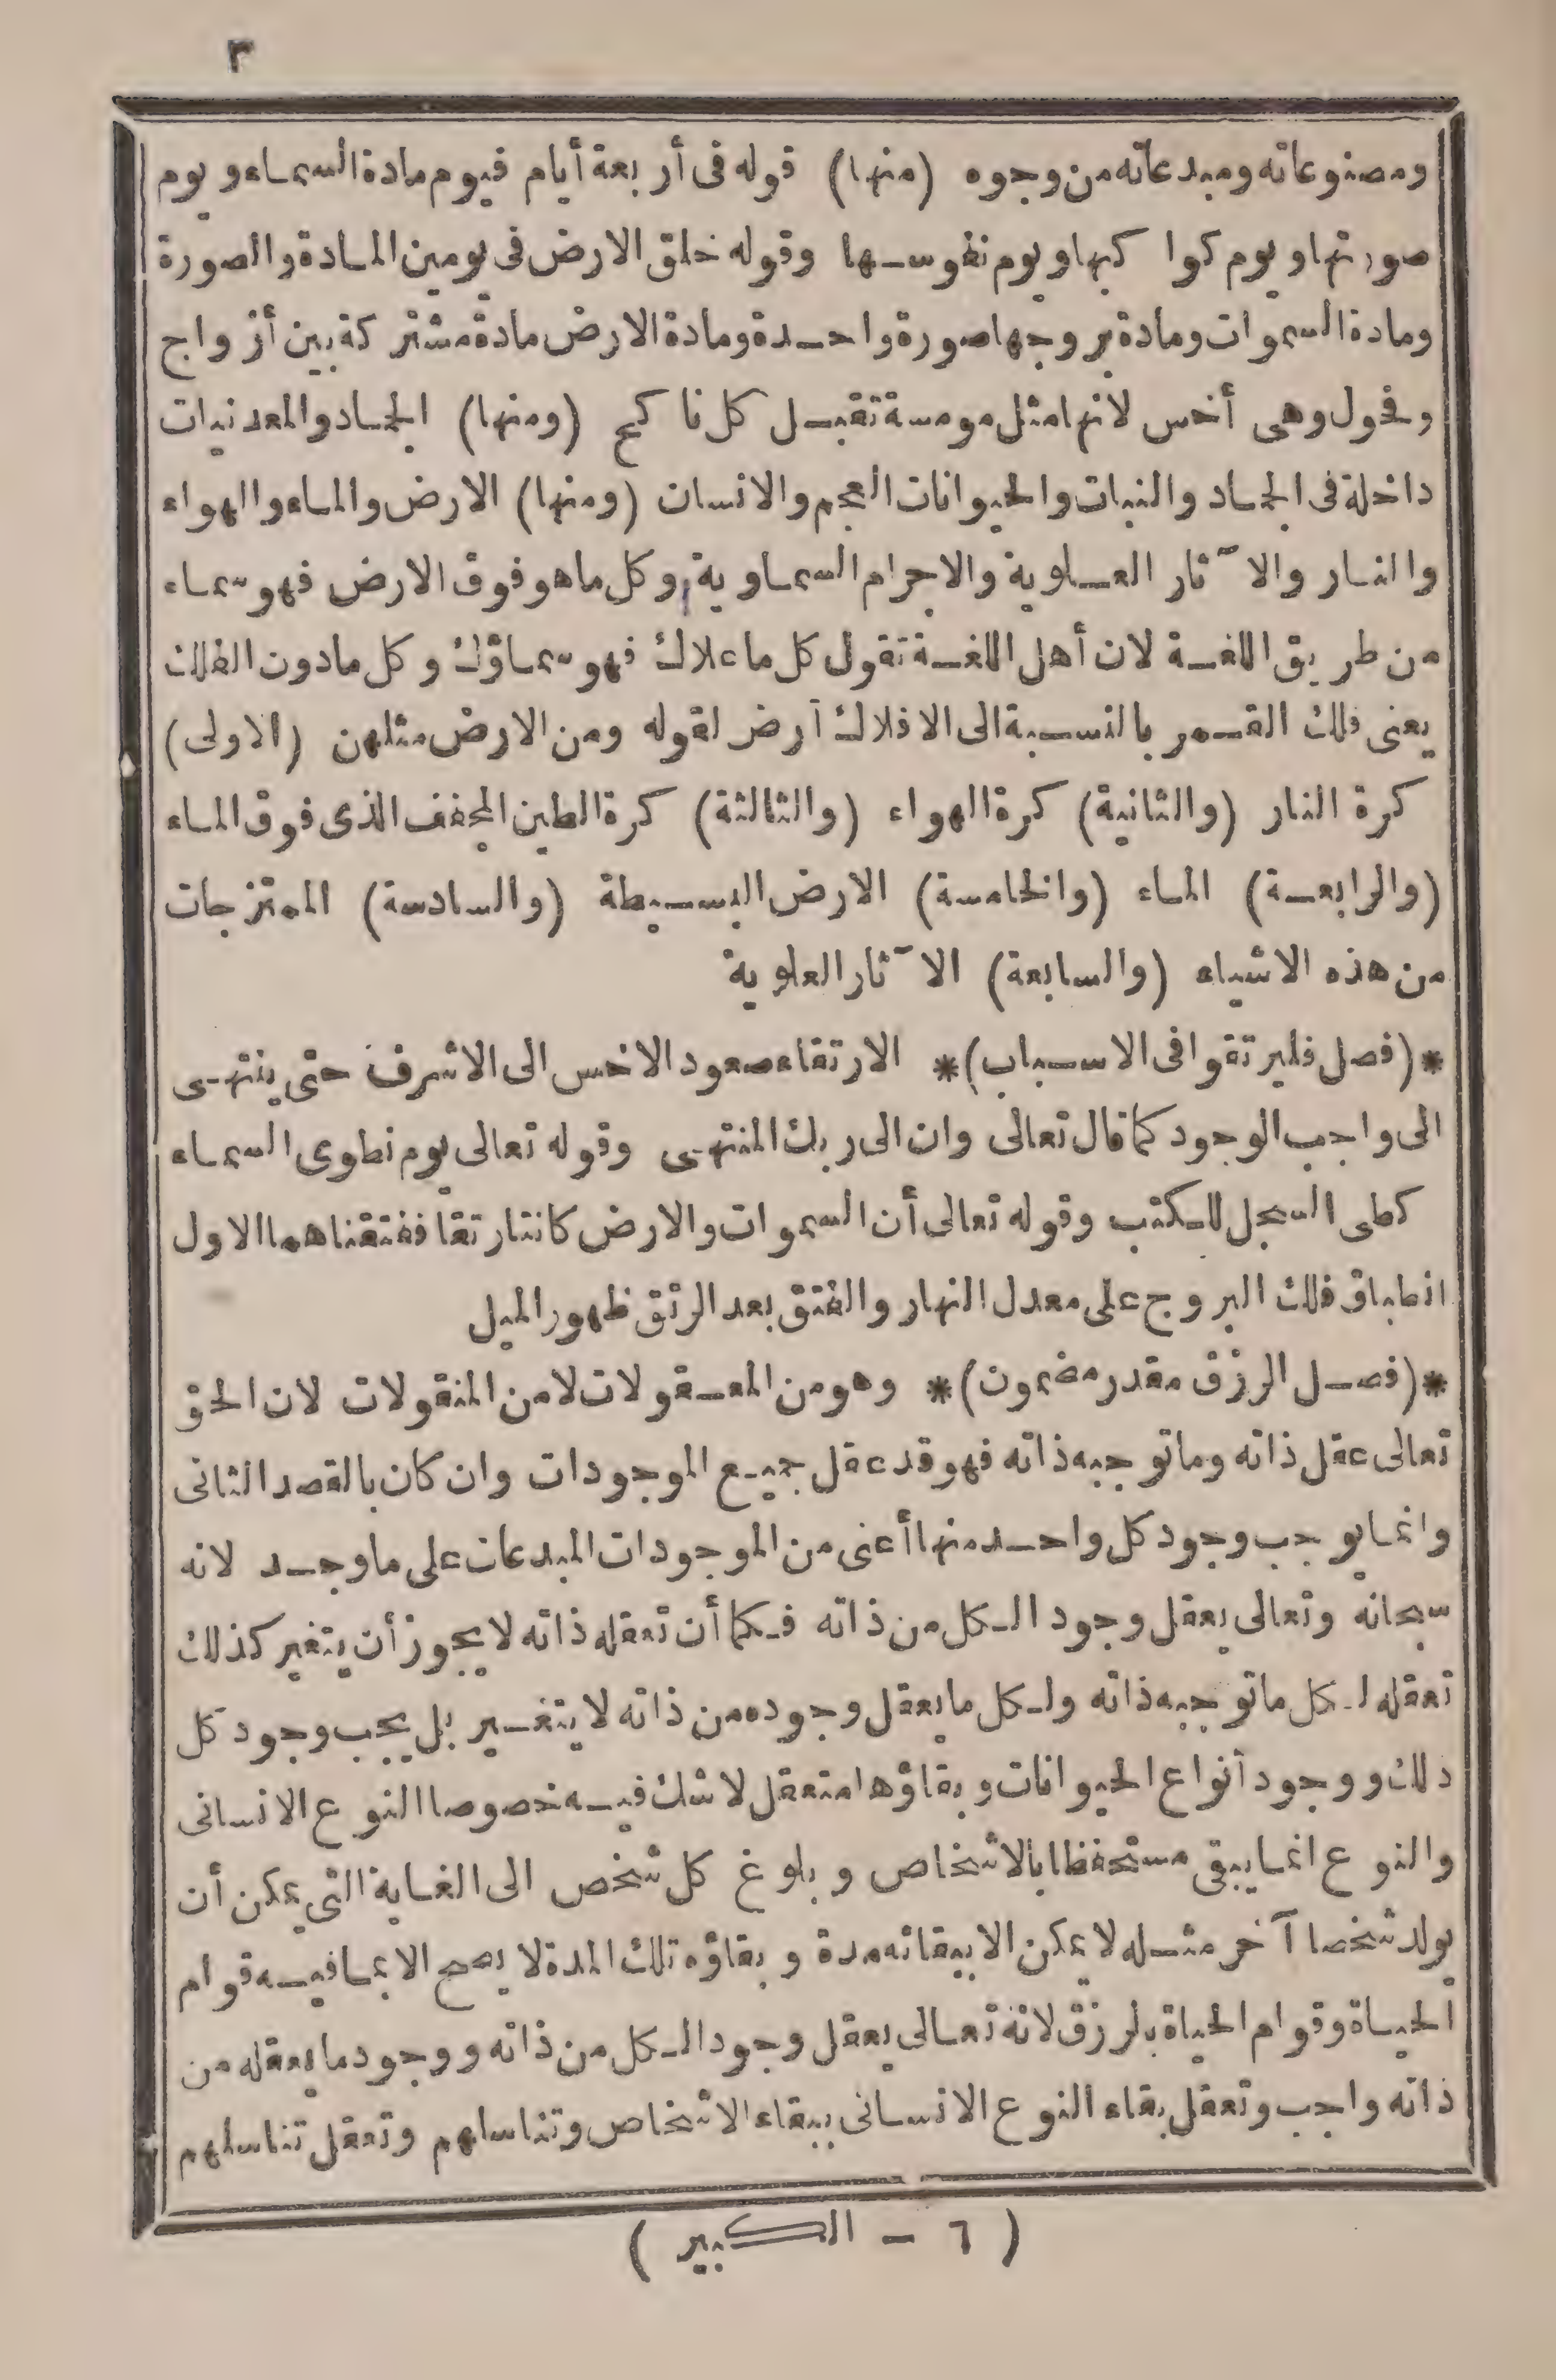 ٣
ومصنوعاته ومبدعاته من وجوه (منها) قوله فى أربعة أيام فيوم مادة السماء ويوم
صورتها ويوم كواكبها ويوم نفوسها وقوله خلق الارض فى يومين المادة والصورة
ومادة السموات ومادة بروجها صورة واحدة ومادة الارض مادة مشتركة بين أزواج
وفحول وهى أخس لانها مثل مومسة تقبل كل ناكح (ومنها) الجماد والمعدنيات
داخلة فى الجماد والنبات والحيوانات العجم والانسان (ومنها) الارض والماء والهواء
والنار والآثار العلوية والاجرام السماوية وكل ما هو فوق الارض فهو سماء
من طريق اللغة لان أهل اللغة تقول كل ما علاك فهو سماؤك وكل مادون الفلك
يعنى فلك القمر بالنسبة الى الافلاك أرض لقوله ومن الارض مثلهن (الاولى)
كرة النار (والثانية) كرة الهواء (والثالثة) كرة الطين المجفف الذى فوق الماء
(والرابعة) الماء (والخامسة) الارض البسيطة (والسادسة) الممتزجات
من هذه الاشياء (والسابعة) الآثار العلوية
*(فصل فليرتقوا فى الاسباب)* الارتقاء صعود الاخس الى الاشرف حتى ينتهى
الى واجب الوجود كما قال تعالى وان الى ربك المنتهى وقوله تعالى يوم نطوى السماء
كطى السجل للكتب وقوله تعالى أن السموات والارض كانتا رتقا ففتقناهما الاول
انطباق فلك البروج على معدل النهار والفتق بعد الرتق ظهور الميل
*(فصل الرزق مقدر مضمون)* وهو من المعقولات لا من المنقولات لان الحق
تعالى عقل ذاته وما توجبه ذاته فهو قد عقل جميع الموجودات وان كان بالقصد الثانى
وانما يوجب وجود كل واحد منها أعنى من الموجودات المبدعات على ما وجد لانه
سبحانه وتعالى يعقل وجود الكل من ذاته فكما أن تعقله ذاته لا يجوز أن يتغير كذلك
تعقله لكل ما توجبه ذاته ولكل ما يعقل وجوده من ذاته لا يتغير بل يجب وجود كل
ذلك ووجود أنواع الحيوانات وبقاؤها متعقل لا شك فيه خصوصا النوع الانسانى
والنوع انما يبقى مستحفظا بالاشخاص وبلوغ كل شخص الى الغاية التى يمكن أن
يولد شخصا آخر مثله لا يمكن الا ببقائه مدة وبقاؤه تلك المدة لا يصح الا بما فيه قوام
الحياة وقوام الحياة بالرزق لانه تعالى يعقل وجود الكل من ذاته ووجود ما يعقله من
ذاته واجب وتعقل بقاء النوع الانسانى ببقاء الاشخاص وتناسلهم وتعقل تناسلهم
( ٦ – الكبير )